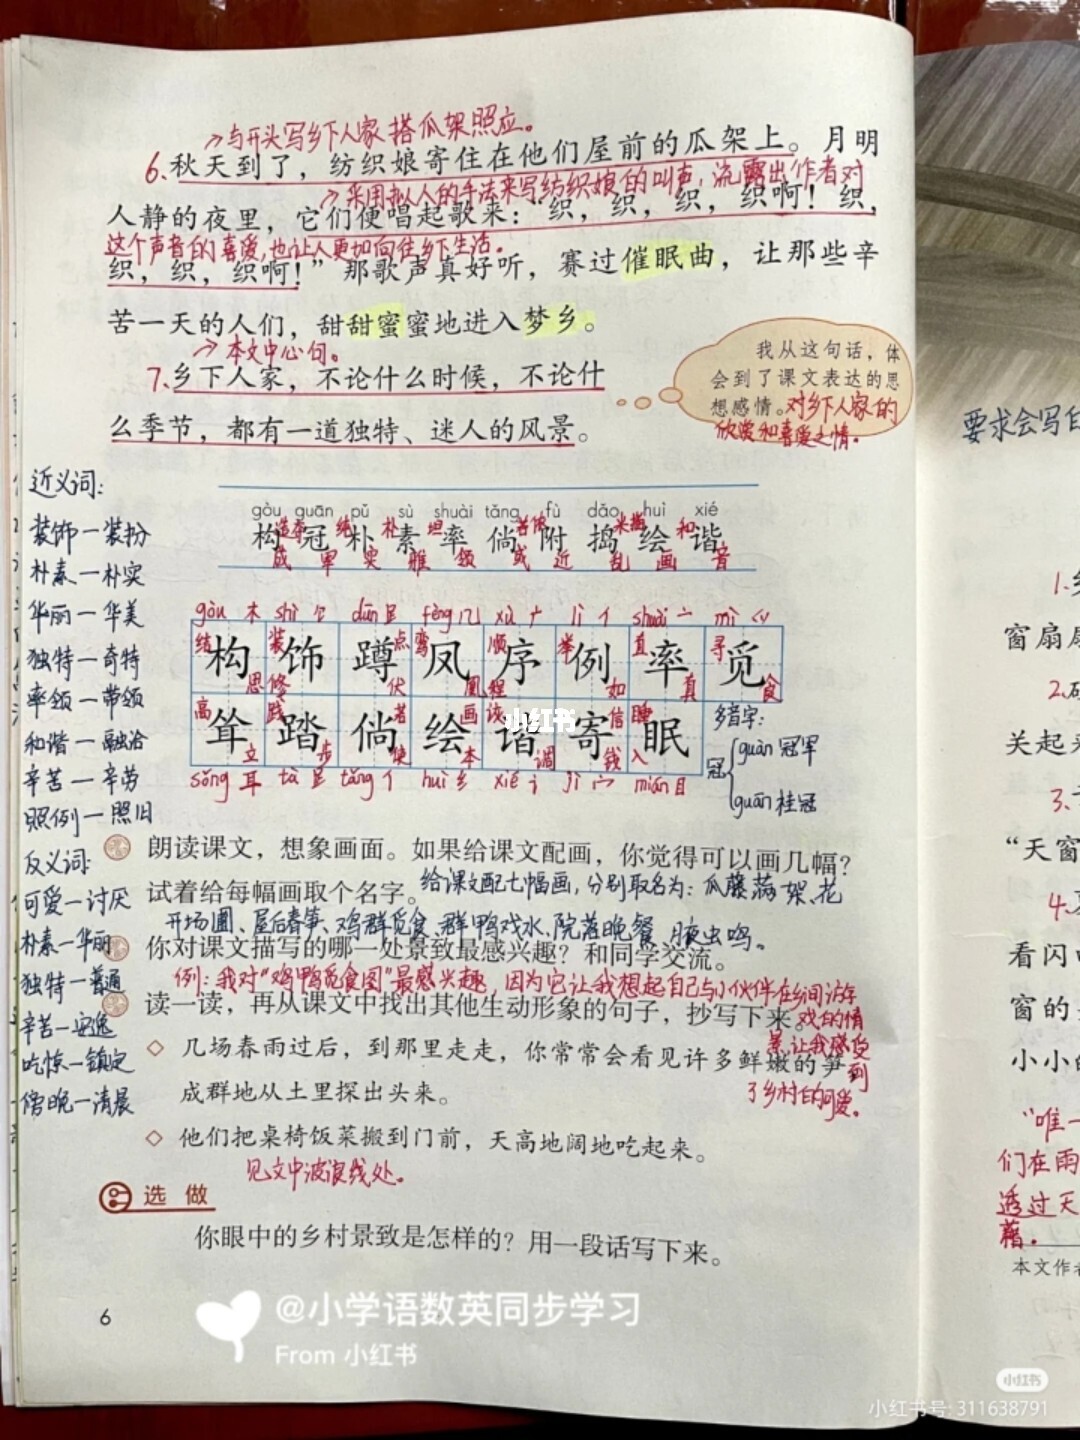 →与开头写乡下人家搭瓜架照应。
6.秋天到了，纺织娘寄住在他们屋前的瓜架上。月明
→采用拟人的手法来写纺织娘的叫声，流露出作者对
人静的夜里，它们便唱起歌来：“织，织，织，织啊！织，
这个声音的喜爱，也让人更加向往乡下生活。
织，织，织啊！”那歌声真好听，赛过催眠曲，让那些辛
苦一天的人们，甜甜蜜蜜地进入梦乡。
→本文中心句。
7.乡下人家，不论什么时候，不论什
么季节，都有一道独特、迷人的风景。
我从这句话，体
会到了课文表达的思
想感情。对乡下人家的
欣赏和喜爱之情。
近义词:
装饰—装扮
朴素—朴实
华丽—华美
独特—奇特
率领—带领
和谐—融洽
辛苦—辛劳
照例—照旧
反义词:
可爱—讨厌
朴素—华丽
独特—普通
辛苦—安逸
吃惊—镇定
傍晚—清晨
gòu guān pǔ sù shuài tǎng fù dǎo huì xié
构冠朴素率倘附捣绘谐
成 军 实 雅 领 或 近 乱 画 音
gòu 木 shì 饣 dūn 𧾷 fèng 几 xù 广 lì 亻 shuài 亠 mì 爫
构饰蹲凤序例率觅
耸踏倘绘谐寄眠
sǒng 耳 tà 𧾷 tǎng 亻 huì 纟 xié 讠 jì 宀 mián 目
多音字:
冠
guàn 冠军
guān 桂冠
朗读课文，想象画面。如果给课文配画，你觉得可以画几幅？
试着给每幅画取个名字。给课文配七幅画，分别取名为：瓜藤满架、花
开场圃、屋后春笋、鸡群觅食、群鸭戏水、院落晚餐、夜虫鸣。
你对课文描写的哪一处景致最感兴趣？和同学交流。
例：我对“鸡鸭觅食图”最感兴趣，因为它让我想起自己与小伙伴在乡间
读一读，再从课文中找出其他生动形象的句子，抄写下来。戏的情
景，让我感受到
了乡村的可爱。
◇ 几场春雨过后，到那里走走，你常常会看见许多鲜嫩的笋，
成群地从土里探出头来。
◇ 他们把桌椅饭菜搬到门前，天高地阔地吃起来。
见文中波浪线处。
选做
你眼中的乡村景致是怎样的？用一段话写下来。
6
要求会写
1.
窗扇
2.
关起
3.
“天窗
4.
看闪
窗的
小小的
“唯一
们在雨
透过天
藉。
本文作者
小红书
@小学语数英同步学习
From 小红书
小红书
小红书号: 311638791